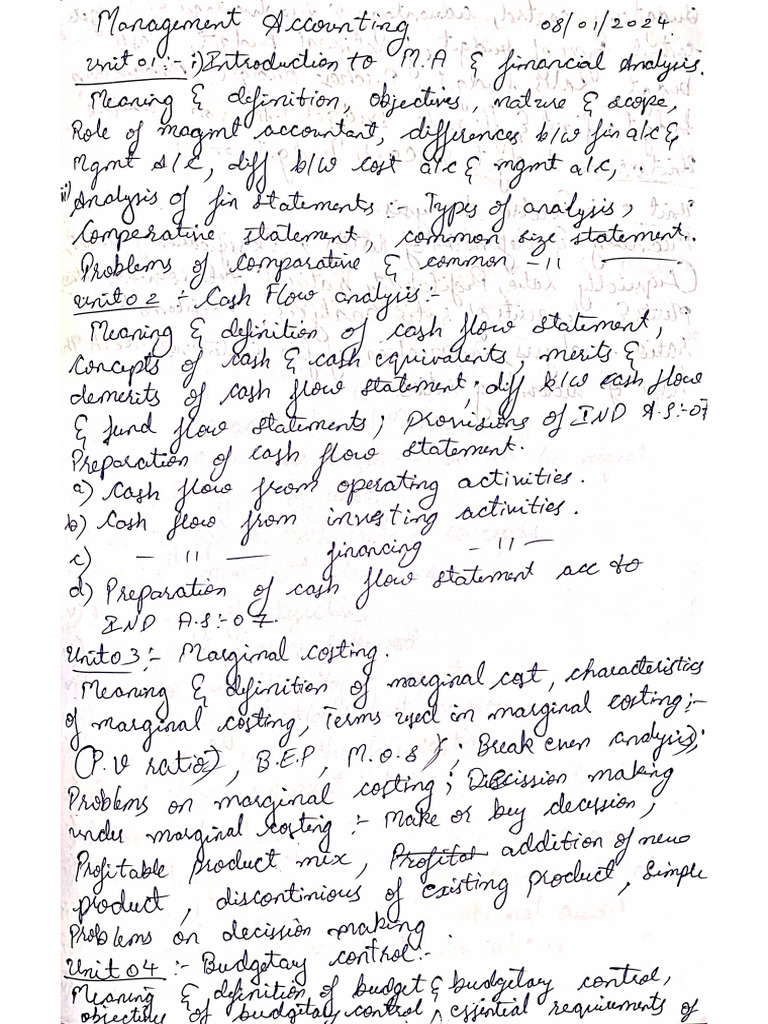 Management Accounting. 08/01/2024
Unit 01 :- i) Introduction to M.A & financial Analysis.
Meaning & definition, objectives, nature & scope,
Role of magmt accountant, differences b/w fin a/c &
Mgmt A/C, diff b/w cost a/c & mgmt a/c, ..
ii) Analysis of fin statements :- Types of analysis,
Comperative Statement, common size statement..
Problems of comparative & common -11 ———
Unit 02 :- Cash Flow analysis:-
Meaning & definition of cash flow statement,
Concepts of cash & cash equivalents, merits &
demerits of cash flow statement; diff b/w cash flow
& fund flow statements; provisions of IND A.S:-07
Preparation of cash flow statement.
a) Cash flow from operating activities.
b) Cash flow from investing activities.
c) — 11 — financing - 11 —
d) Preparation of cash flow statement acc to
IND A.S:-07.
Unit 03 :- Marginal costing.
Meaning & definition of marginal cost, characteristics
of marginal costing, Terms used in marginal costing:-
(P.V ratio), B.E.P, M.O.S); Break even analysis);
Problems on marginal costing; Discission making
under marginal costing :- Make or buy decession,
Profitable product mix, addition of new
product, discontinious of existing product, Simple
Problems on decission making.
Unit 04 :- Budgetary control:-
Meaning & definition of budget & budgetary control,
objectives of budgetary control, essential requirements of